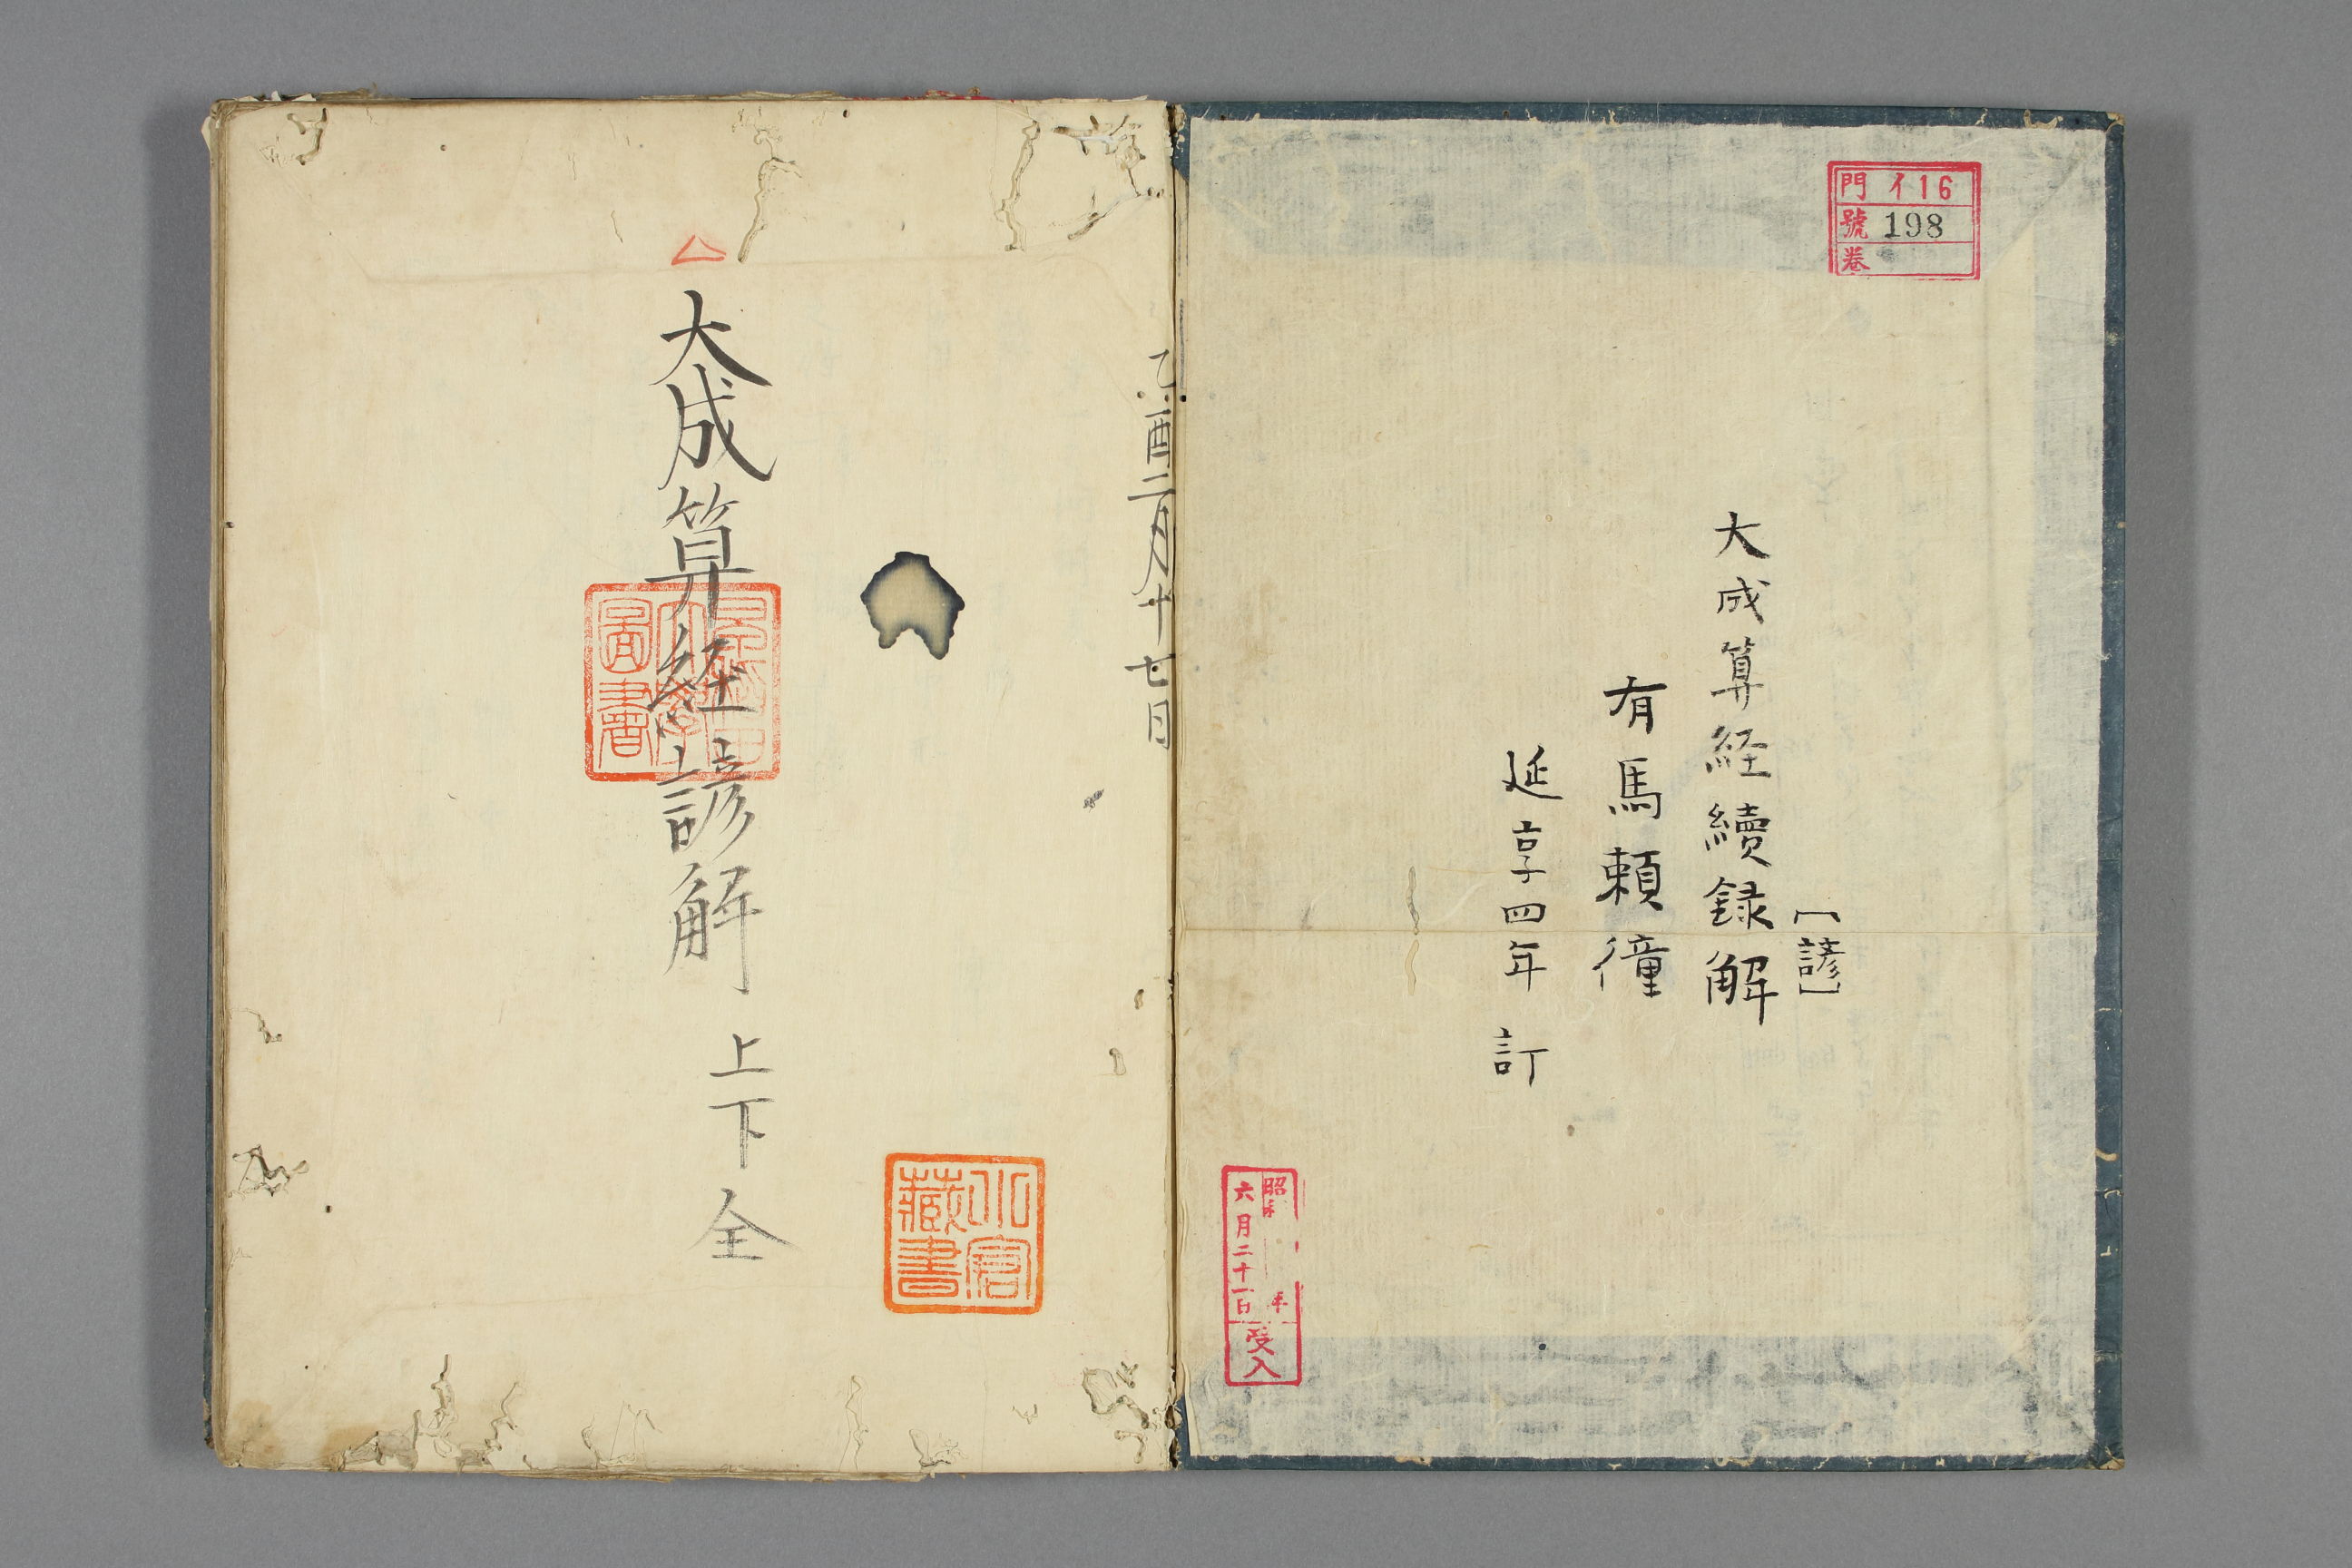 門 イ16
號 198
卷
[諺]
大成算経續録解
有馬頼徸
延享四年 訂
昭和 年
六月二十一日
受入
乙酉二月十七日
大成算経諺解 上下全
圖書
藏書